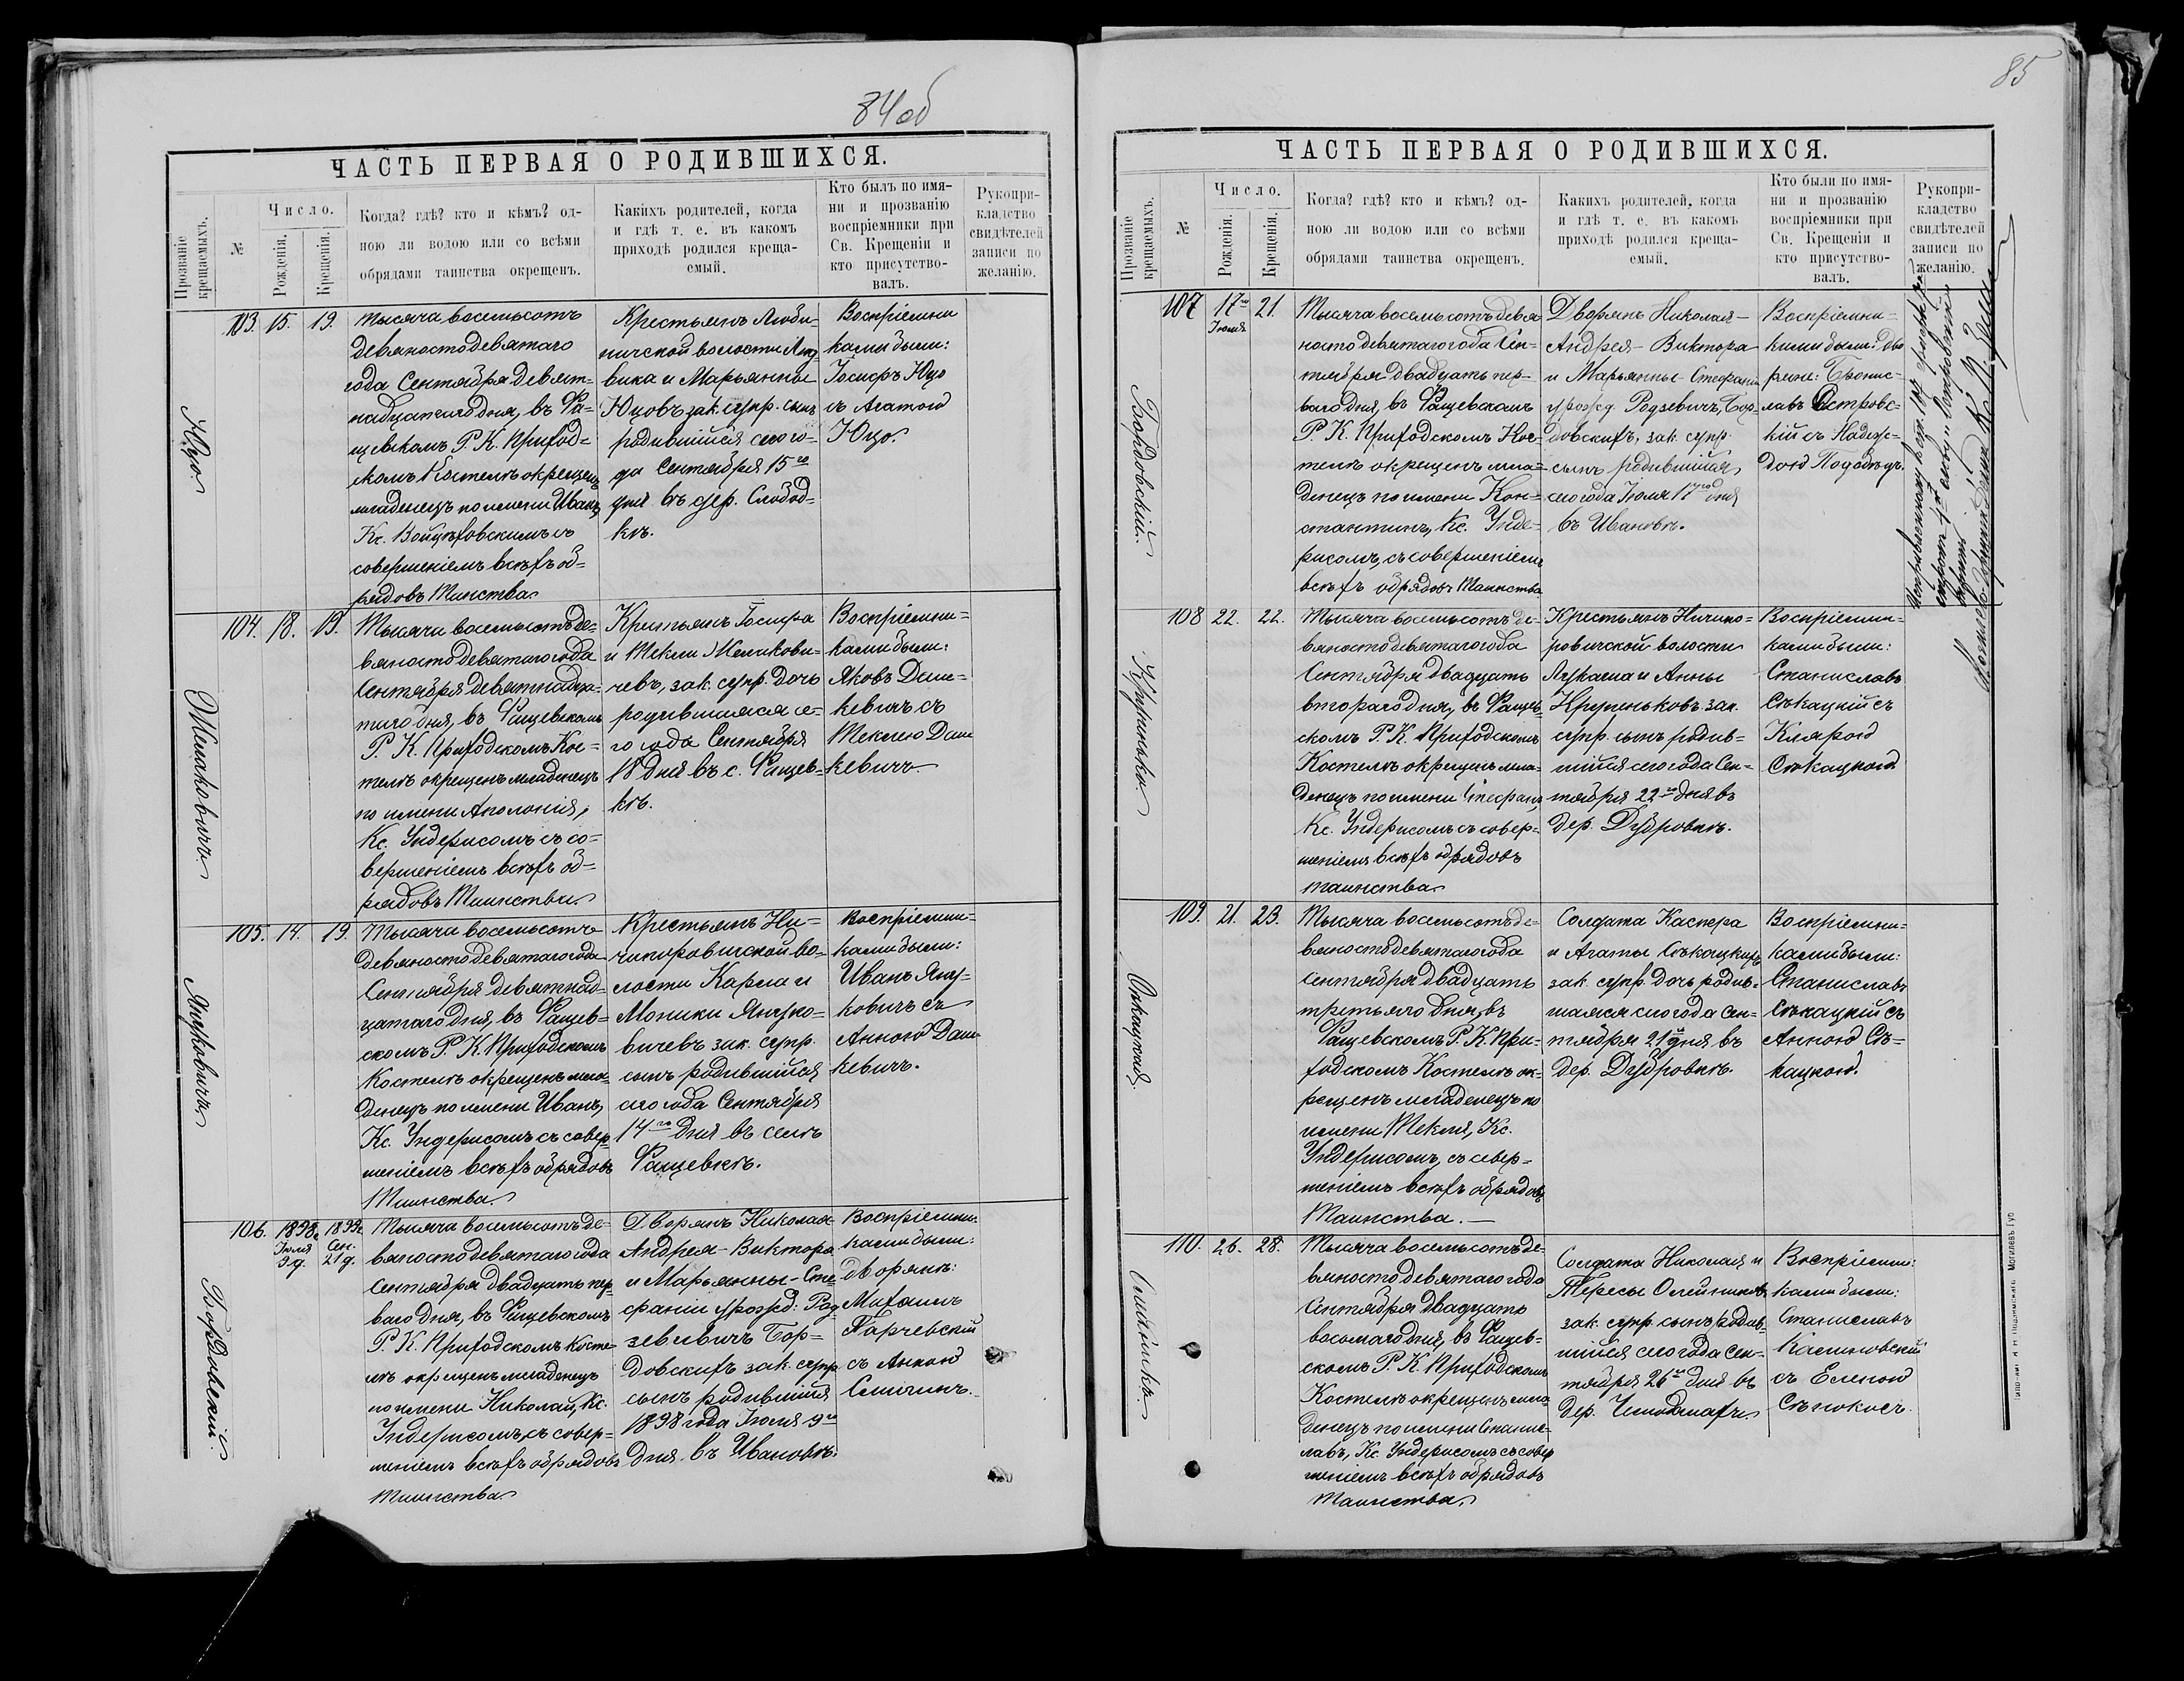 84об
ЧАСТЬ ПЕРВАЯ О РОДИВШИХСЯ.
Прозваніе крещаемыхъ.
№
Число.
Рожденія.
Крещенія.
Когда? гдѣ? кто и кѣмъ? од-
ною ли водою или со всѣми
обрядами таинства окрещенъ.
Какихъ родителей, когда
и гдѣ т. е. въ какомъ
приходѣ родился креща-
емый.
Кто былъ по имя-
ни и прозванію
воспріемники при
Св. Крещеніи и
кто присутство-
валъ.
Рукопри-
кладство
свидѣтелей
записи по
желанію.
Юцо.
103. 15. 19.
Тысяча восемьсотъ
девяностодевятаго
года Сентября девят-
надцатагодня, въ Фа-
щевскомъ Р. К. Приход-
скомъ Костелѣ окрещенъ
младенецъ поимени Иванъ,
Кс. Войцѣховскимъ съ
совершеніемъ всѣхъ об-
рядовъ Таинства
Крестьянъ Люби-
ничской волости Люд
вика и Марьянны
Юцовъ зак. супр. сынъ
родившійся сего го-
да Сентября 15го
дня въ дер. Слобод-
кѣ.
Воспріемни
ками были:
Іосифъ Юцо
съ Агатою
Юцо.
104. 18. 19.
Тысяча восемьсотъ де-
вяностодевятаго года
Сентября девятнадца-
таго дня, въ Фащевскомъ
Р. К. Приходскомъ Кос-
телѣ окрещенъ младенецъ
по имени Аполонія,
Кс. Ундерисомъ съ со-
вершеніемъ всѣхъ об-
рядовъ Таинства
Крестьянъ Іосифа
и Текли
чевъ, зак. супр. дочь
родившаяся се-
го года Сентября
18 дня въ с. Фащев-
кѣ.
Воспріемни-
ками были:
Яковъ Даш-
кевичъ съ
Теклею Даш
кевичъ.
Януковичъ
105. 14. 19.
Тысяча восемьсотъ
девяностодевятаго года
Сентября девятнад-
цатаго дня, въ Фащев-
скомъ Р. К. Приходскомъ
Костелѣ окрещенъ мла-
денецъ поимени Иванъ,
Кс. Ундерисомъ съ совер-
шеніемъ всѣхъ обрядовъ
Таинства
Крестьянъ Ни-
чипоровичской во-
лости Карла и
Моники Януко-
вичевъ зак. супр.
сынъ родившійся
сего года Сентября
14го дня въ селѣ
Фащевкѣ.
Воспріемни-
ками были:
Иванъ Яну-
ковичъ съ
Анною Даш
кевичъ.
Бордовскій.
106. 1898г. Іюля 9 д. 1899г. Сен. 21 д.
Тысяча восемьсотъ де-
вяностодевятаго года
Сентября двадцать пер
ваго дня, въ Фащевскомъ
Р. К. Приходскомъ Косте-
лѣ окрещенъ младенецъ
поимени Николай, Кс.
Ундерисомъ, съ совер-
шеніемъ всѣхъ обрядовъ
Таинства
Дворянъ Николая-
Андрея-Виктора
и Марьянны-Сте-
фаніи урожд: Род
зевичъ Бор-
довскихъ зак. супр
сынъ родившійся
1898 года Іюля 9го
дня въ Ивановѣ.
Воспріемни-
ками были:
дворяне:
Михаилъ
Гарчевскій
съ Анною
85
ЧАСТЬ ПЕРВАЯ О РОДИВШИХСЯ.
Прозваніе крещаемыхъ.
№
Число.
Рожденія.
Крещенія.
Когда? гдѣ? кто и кѣмъ? од-
ною ли водою или со всѣми
обрядами таинства окрещенъ.
Какихъ родителей, когда
и гдѣ т. е. въ какомъ
приходѣ родился креща-
емый.
Кто были по имя-
ни и прозванію
воспріемники при
Св. Крещеніи и
кто присутство-
валъ.
Рукопри-
кладство
свидѣтелей
записи по
желанію.
Бордовскій.
107 17го Іюля 21.
Тысяча восемьсотъ девя
ностодевятаго года Сен-
тября двадцать пер-
ваго дня, въ Фащевскомъ
Р. К. Приходскомъ Кос-
телѣ окрещенъ мла-
денецъ по имени Кон-
стантинъ, Кс. Унде-
рисомъ, съ совершеніемъ
всѣхъ обрядовъ Таинства
Дворянъ Николая-
Андрея-Виктора
и Марьянны-Стефаніи
урожд. Родзевичъ, Бор-
довскихъ, зак. супр.
сынъ родившійся
сего года Іюля 17го дня
въ Ивановѣ.
Воспріемни-
ками были: дво
ряне: Бронис-
лавъ Островс-
кій съ Надеж-
дою Подобѣдъ.
108 22. 22.
Тысяча восемьсотъ де-
вяностодевятаго года
Сентября двадцать
втораго дня, въ Фащев-
скомъ Р. К. Приходскомъ
Костелѣ окрещенъ мла-
денецъ поимени Стефанъ,
Кс. Ундерисомъ съ совер-
шеніемъ всѣхъ обрядовъ
таинства
Крестьянъ Ничипо-
ровичской волости
и Анны
зак.
супр. сынъ родив-
шійся сего года Сен-
тября 22го дня въ
дер. Дубровкѣ.
Воспріемни-
ками были:
Станиславъ
Сѣкацкій съ
Кларою
Сѣкацкою
109. 21. 23.
Тысяча восемьсотъ де-
вяностодевятаго года
Сентября двадцать
третьяго дня, въ
Фащевскомъ Р. К. При-
ходскомъ Костелѣ ок-
рещенъ младенецъ по
имени Текля, Кс.
Ундерисомъ, съ совер-
шеніемъ всѣхъ обрядовъ
Таинства.
Солдата Каспера
и Агаты Сѣкацкихъ
зак. супр. дочь родив-
шаяся сего года Сен-
тября 21го дня въ
дер. Дубровкѣ.
Воспріемни-
ками были:
Станиславъ
Сѣкацкій съ
Анною Сѣ-
кацкою.
110. 26. 28.
Тысяча восемьсотъ де-
вяностодевятаго года
Сентября двадцать
восьмаго дня, въ Фащев-
скомъ Р. К. Приходскомъ
Костелѣ окрещенъ мла
денецъ поимени Станис-
лавъ, Кс. Ундерисомъ съ совер
шеніемъ всѣхъ обрядовъ
Таинства.
Солдата Николая и
Тересы
зак. супр. сынъ родив-
шійся сего года Сен-
тября 26го дня въ
дер.
Воспріемни-
ками были:
Станиславъ
Калиновскій
съ Еленою
Сѣнокосъ.